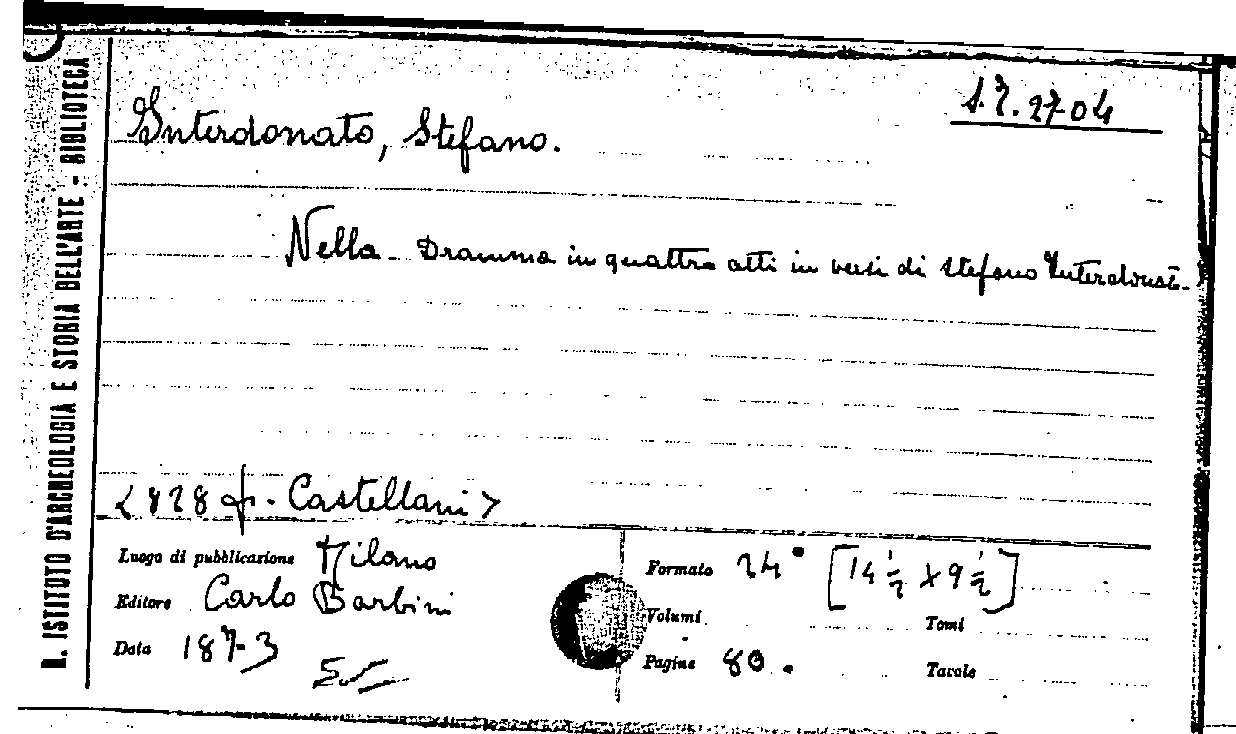 R. ISTITUTO D'ARCHEOLOGIA E STORIA DELL'ARTE - BIBLIOTECA
S.7.2704
Interdonato, Stefano.
Nella - Dramma in quattro atti in versi di Stefano Interdonato.
<828 - Castellani>
Luogo di pubblicazione Milano
Editore Carlo Barbini
Data 1873
Formato 24° [14 ½ x 9 ½]
Volumi Tomi
Pagine 80. Tavole